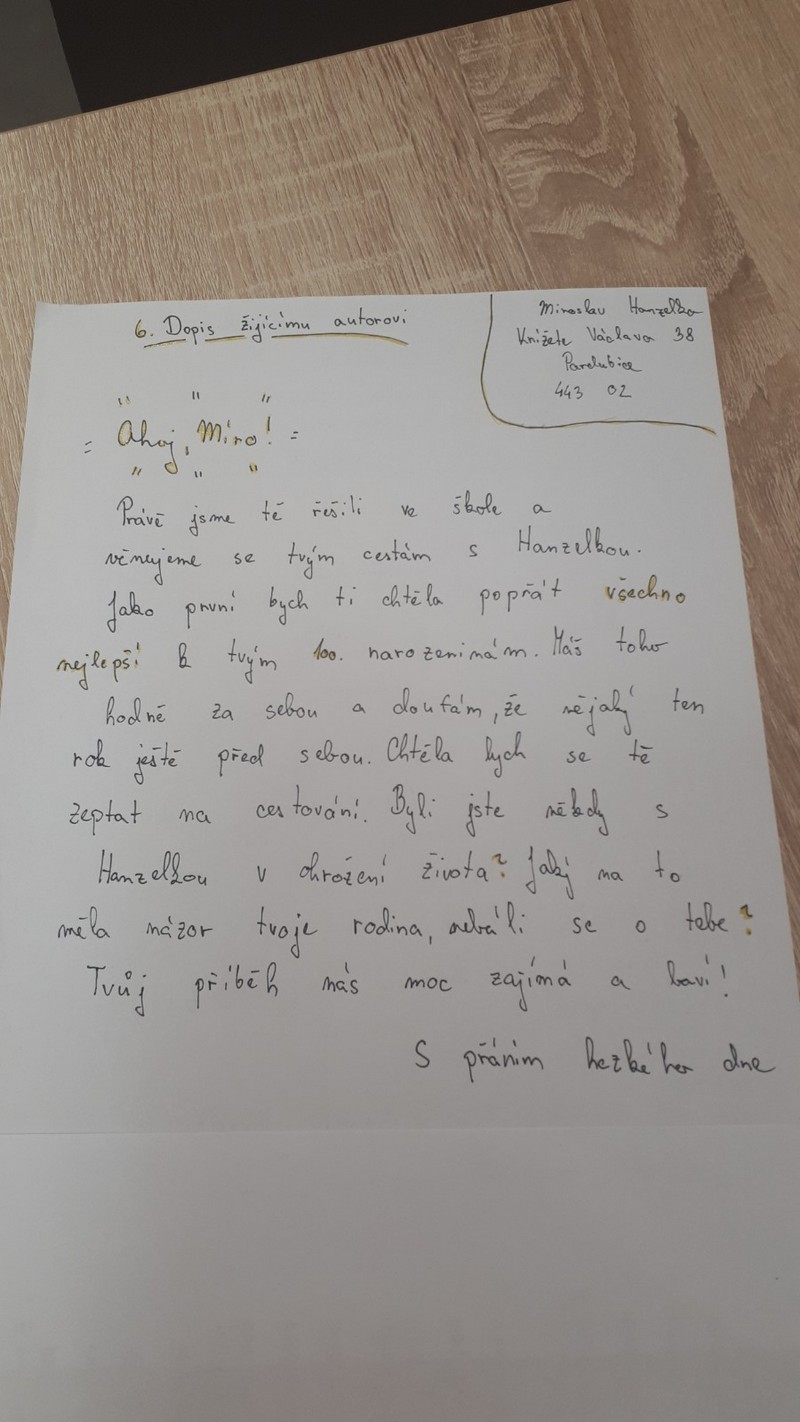 6. Dopis žijícímu autorovi
Miroslav Hanzelka
Knížete Václava 38
Pardubice
443 02
Ahoj, Miro!
Právě jsme tě řešili ve škole a
věnujeme se tvým cestám s Hanzelkou.
Jako první bych ti chtěla popřát všechno
nejlepší k tvým 100. narozeninám. Máš toho
hodně za sebou a doufám, že nějaký ten
rok ještě před sebou. Chtěla bych se tě
zeptat na cestování. Byli jste někdy s
Hanzelkou v ohrožení života? Jaký na to
měla názor tvoje rodina, nebáli se o tebe?
Tvůj příběh nás moc zajímá a baví!
S přáním hezkého dne